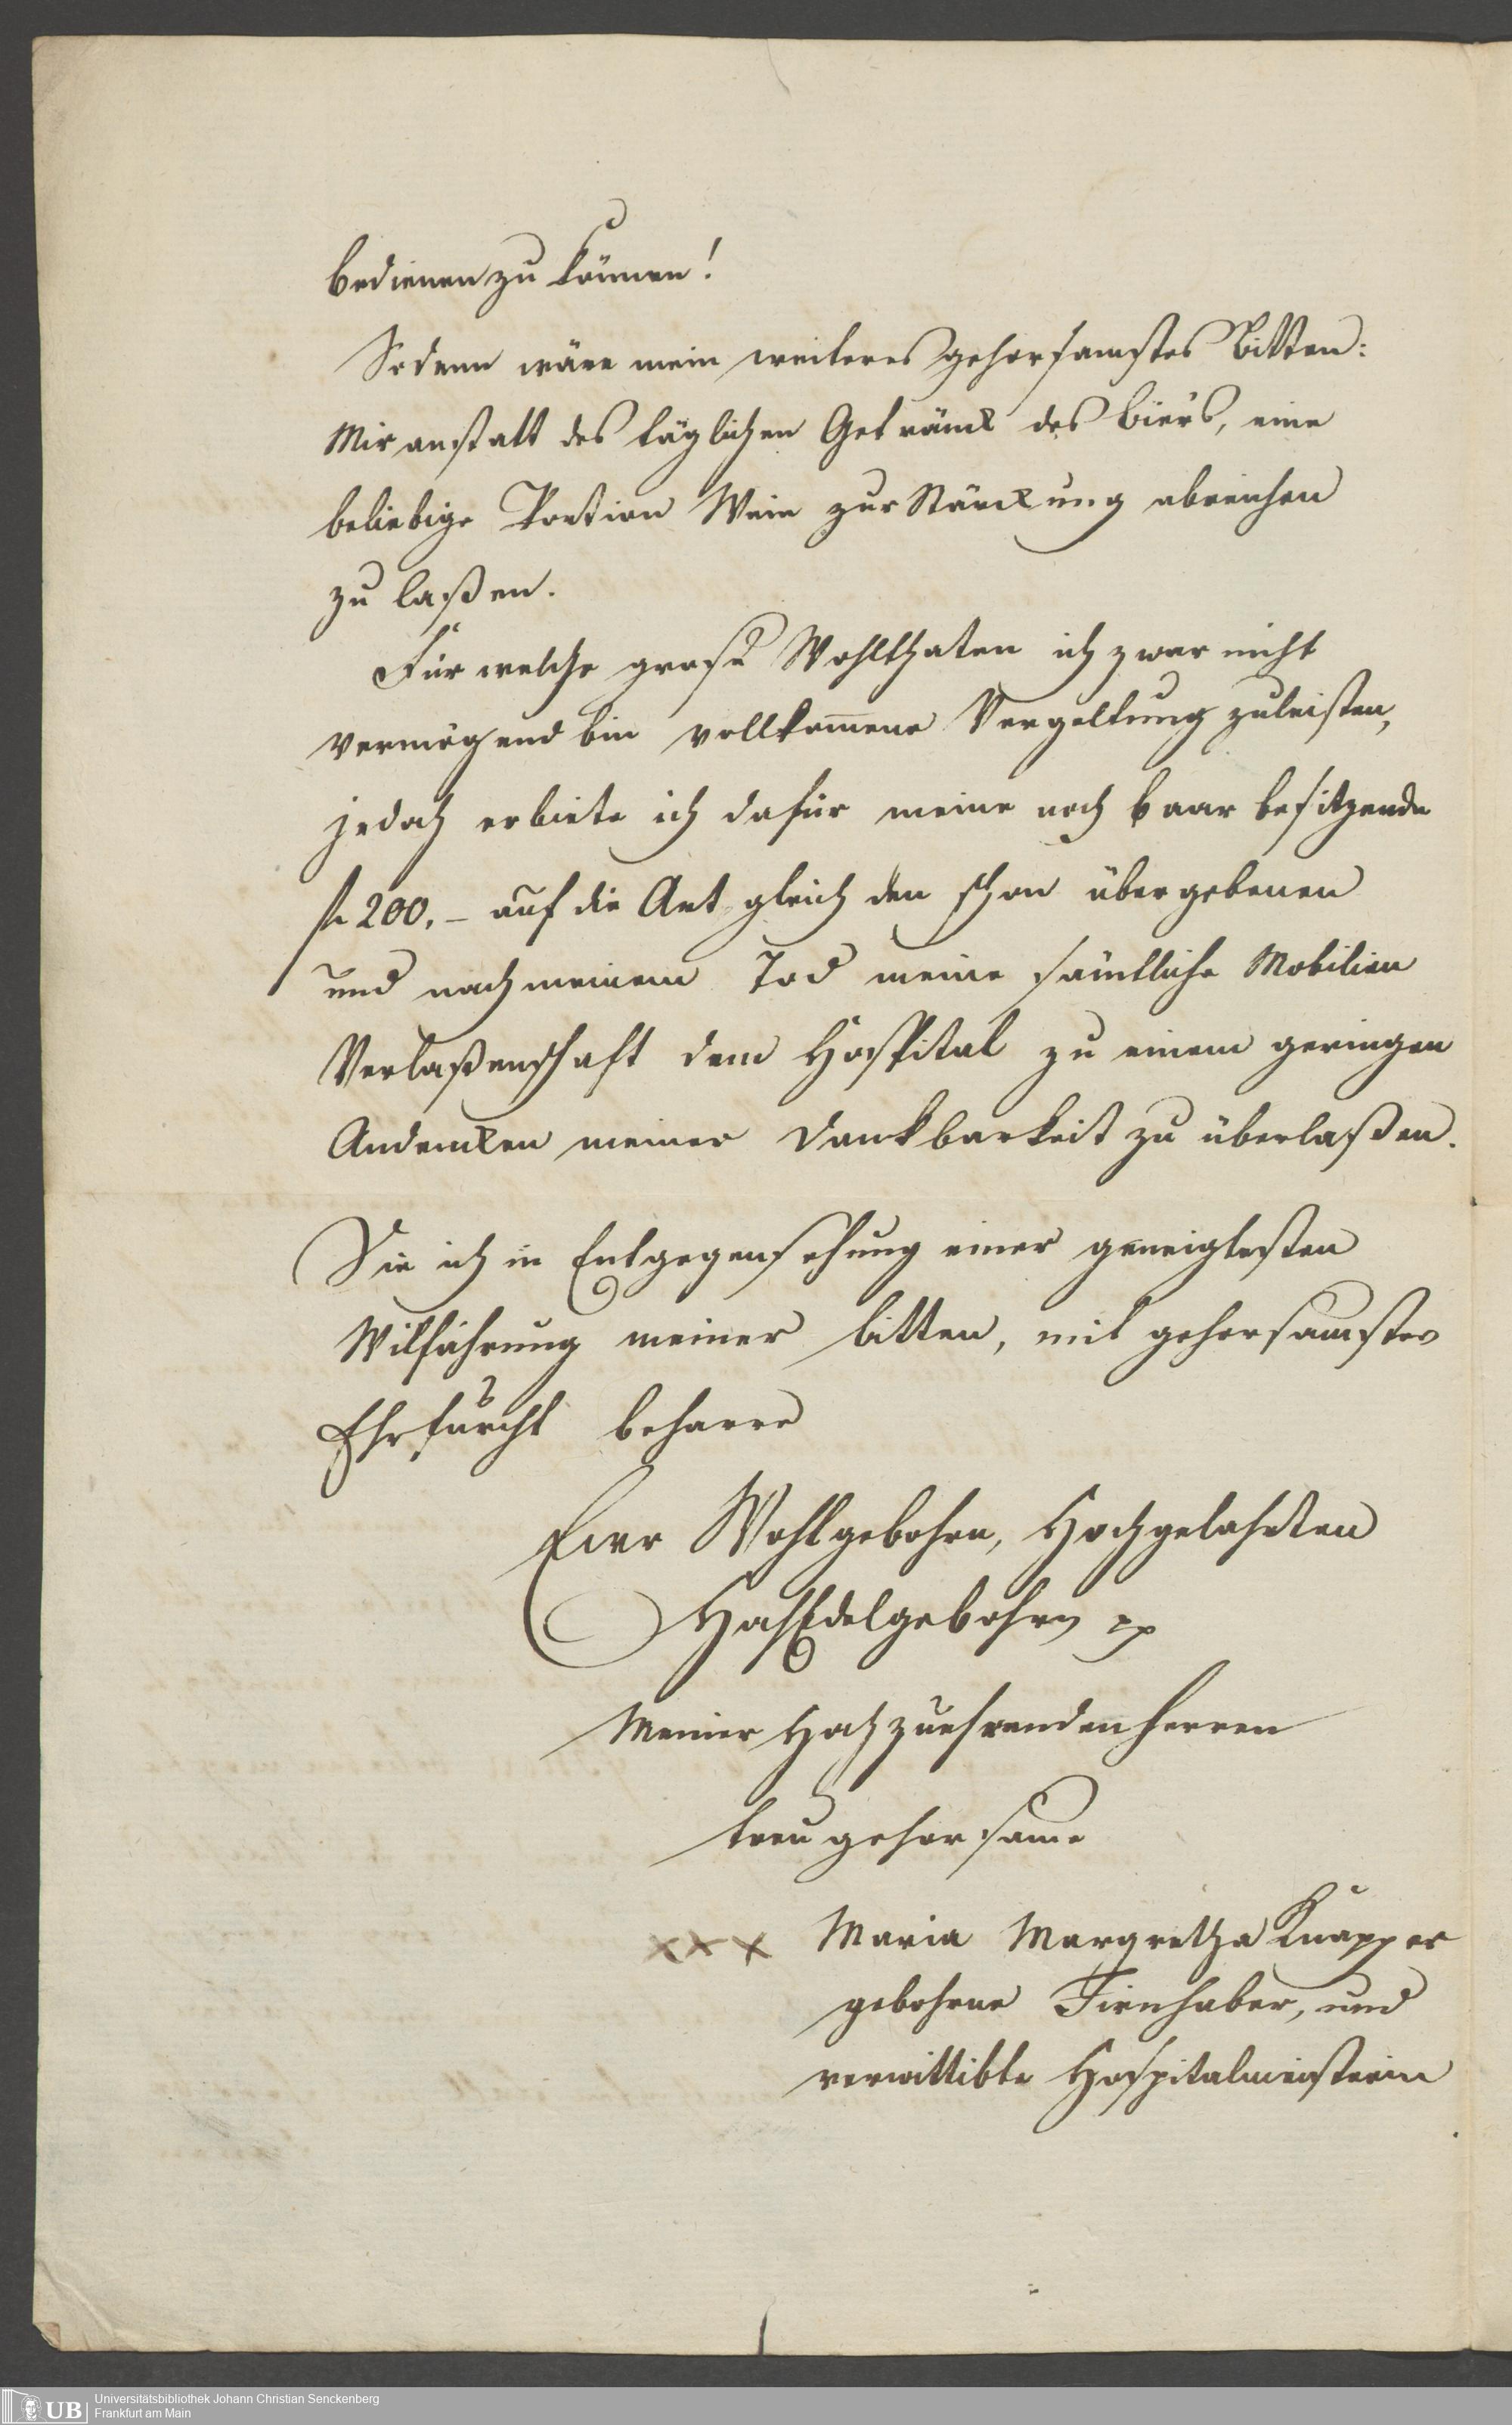 bedienen zu können!
Sodann wäre mein weiteres gehorsamstes Bitten:
Mir anstatt des täglichen Getränck des Biers, eine
beliebige Portion Wein zur Stärckung abreichen
zu laßen.
Für welche große Wohlthaten ich zwar nicht
vermögend bin vollkom̄ene Vergeltung zuleisten,
jedoch erbiete ich dafür meine noch baar besitzende
fl 200.- auf die Art gleich den schon übergebenen
und nach meinem Tod meine sämtliche Mobilien
Verlaßenschaft dem Hospital zu einem geringen
Andencken meiner Danckbarkeit zu überlaßen.
Die ich in Entgegensehung einer geneigtesten
Wilfahrung meiner bitten, mit gehorsamster
Ehrfurcht beharre
Euer Wohlgebohrn, Hochgelahrten
HochEdelgebohrn pp
Meiner Hochzuehrenden Herren
treu gehorsame
xxx Maria Margretha Knapper
gebohrne Firnhaber, und
verwittibte Hospitalmeisterin
UB Universitätsbibliothek Johann Christian Senckenberg
Frankfurt am Main